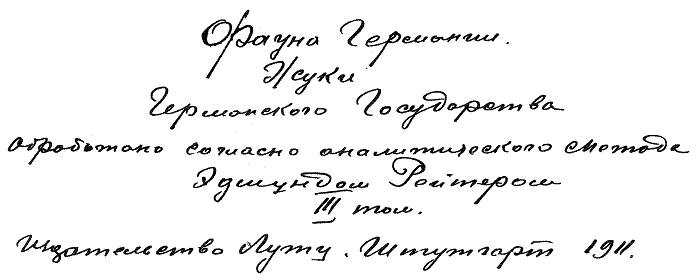 Фауна Германии.
Жуки
Германского Государства
обработано согласно аналитического метода
Эдмундом Рейтером
III том.
издательство Лутц. Штутгарт 1911.